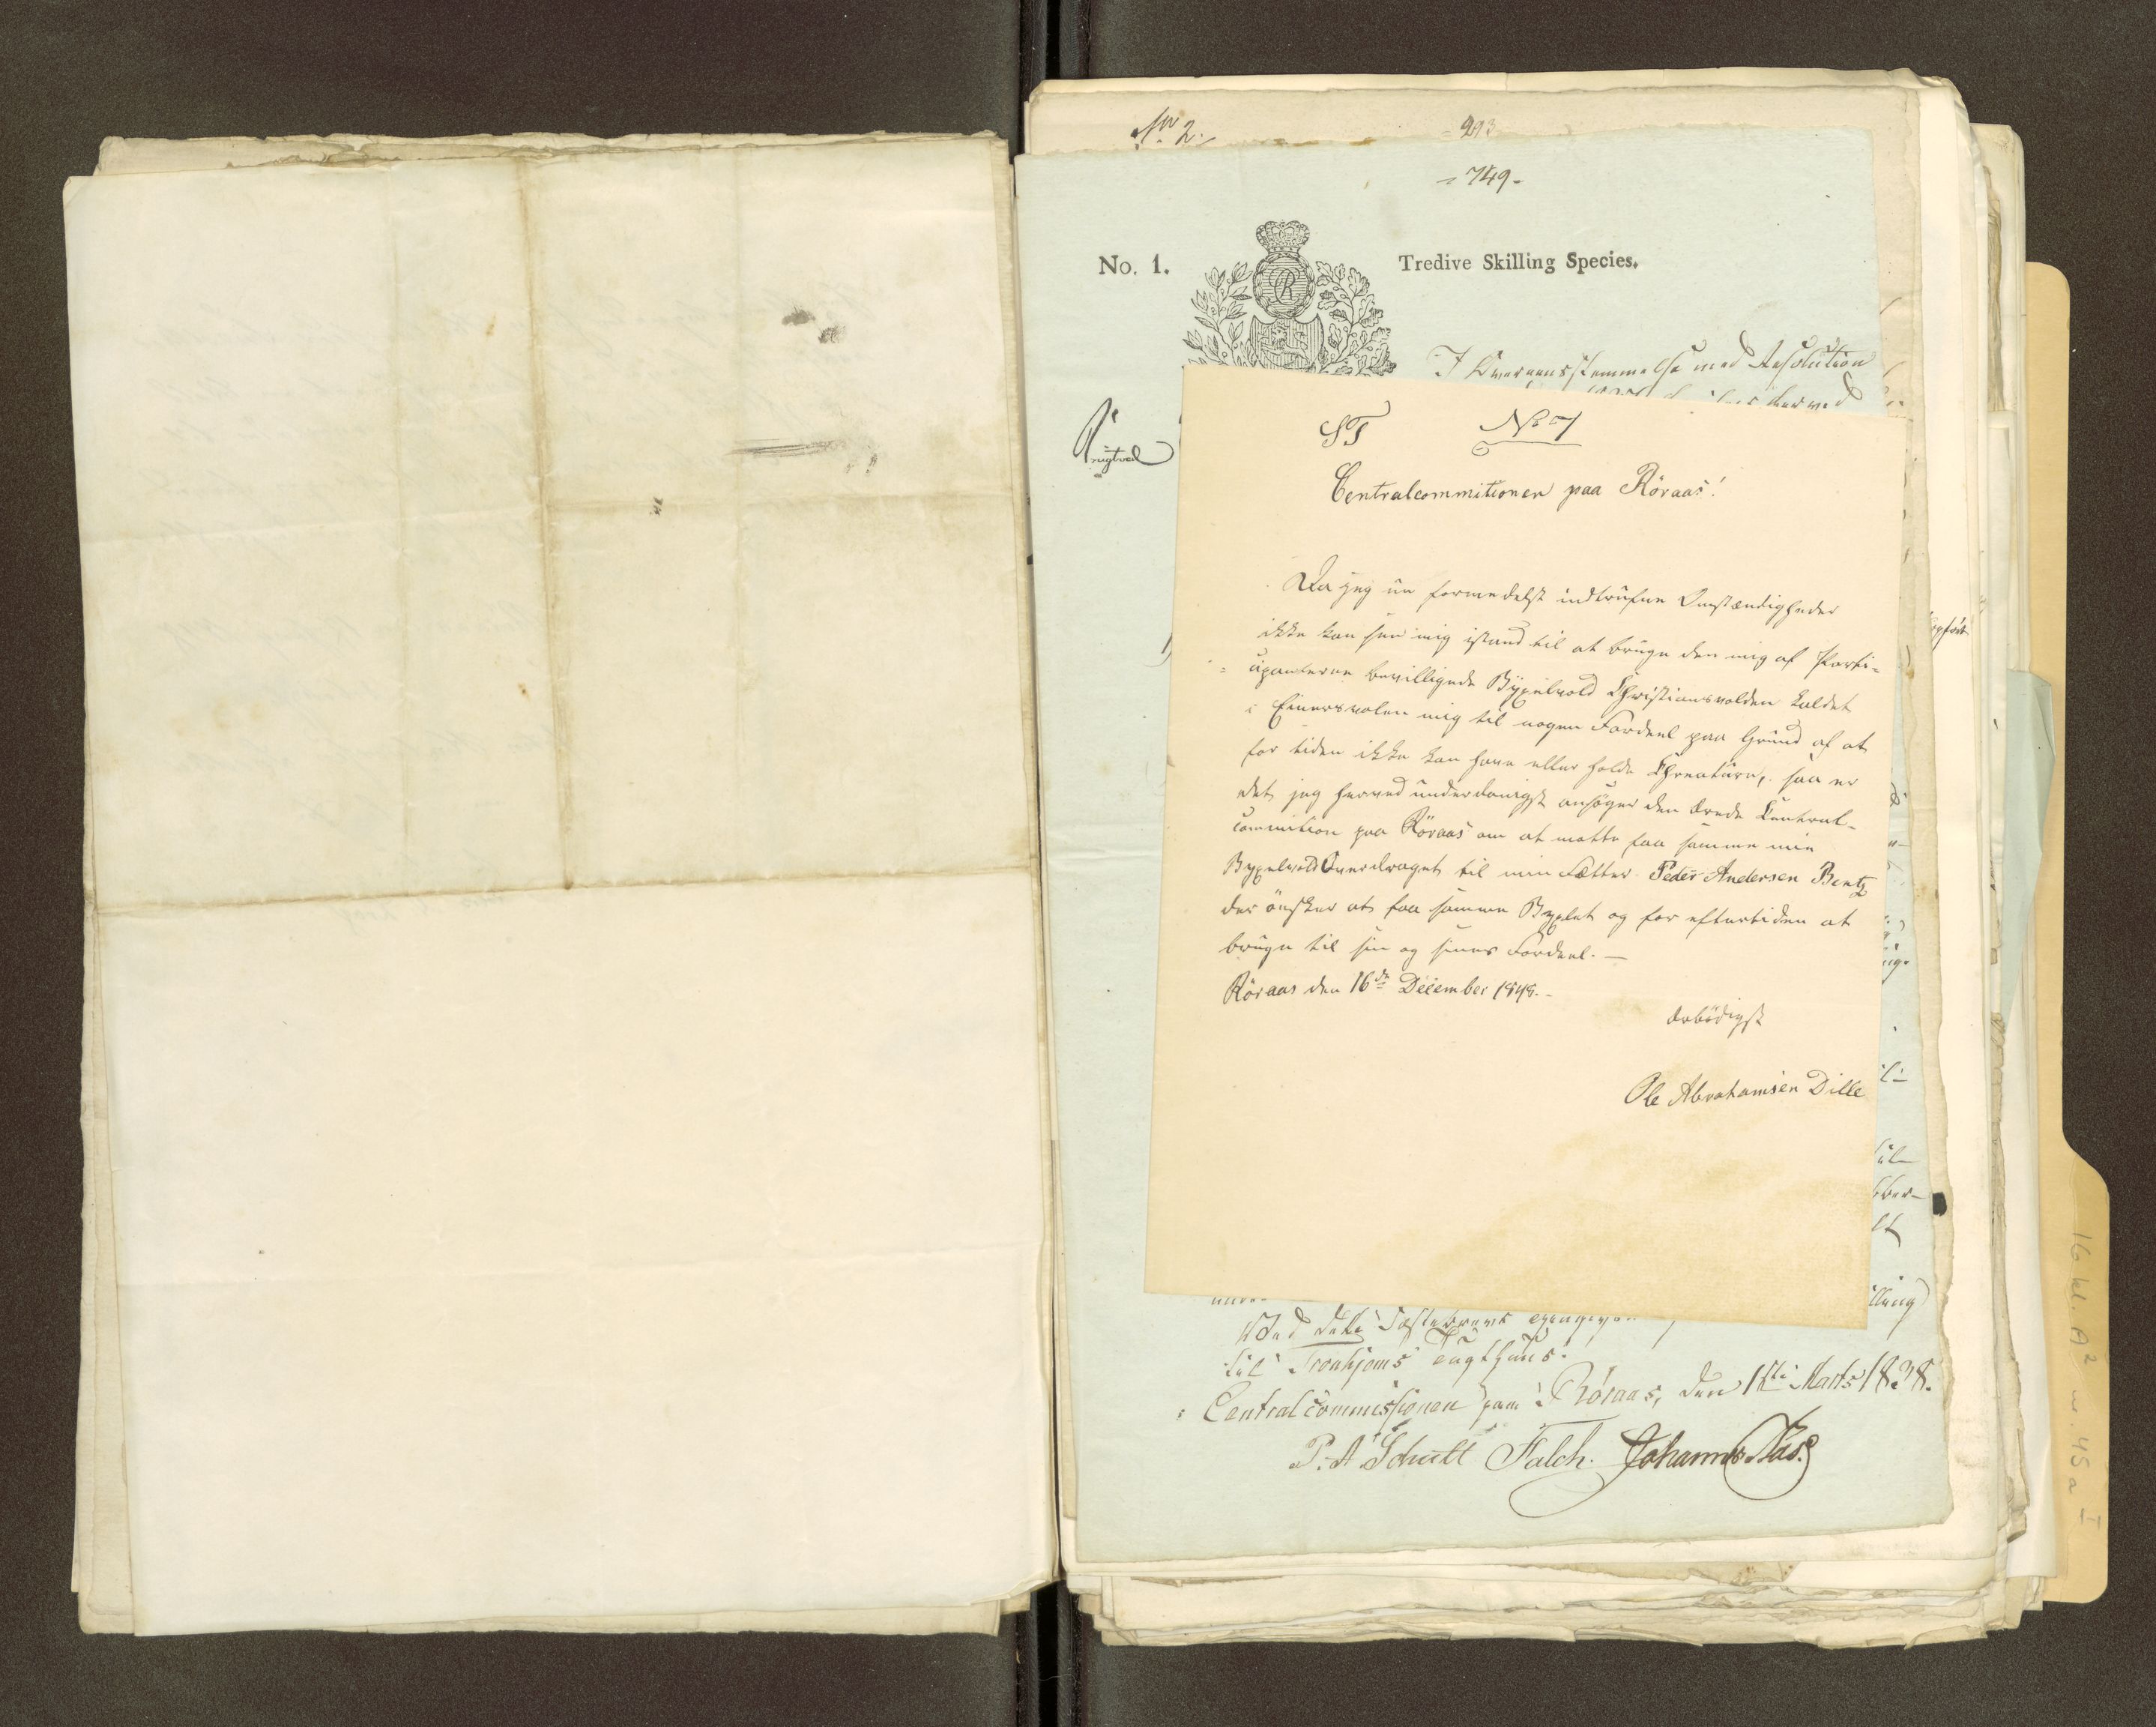 No 2.
293
749.
No. 1.
Tredive Skilling Species.
I Overeensstemmelse med Resolution
herved
ST
No 7
Centralcommitionen paa Röraas!
Da jeg nu formedelst indtrufne Omstændigheder
ikke kan see mig istand til at bruge den mig af Parti-
cipanterne bevilligede Bÿxelvold Christiansvolden kaldet
i Einersvolen mig til nogen Fordeel paa Grund af at
for tiden ikke kan have eller holde Chreature, saa er
det jeg herved underdanigst ansøger den ærede Central-
commition paa Röraas om at motte faa samme min
Byxelvold Overdraget til min Fætter Peder Andersen Bentz
der önsker at faa samme Byxlet og for eftertiden at
bruge til sin og sines Fordeel. —
Röraas den 16de December 1848.
ærbödigst
Ole Abrahamsen Dille
Ved dette
til Tronhjems Tugthuus.
Centralcommissionen paa Röraas, den 1ste Marts 1838.
P. A Schult Falch. Johannes Aas.
16 kl. A2 nr. 45 a I